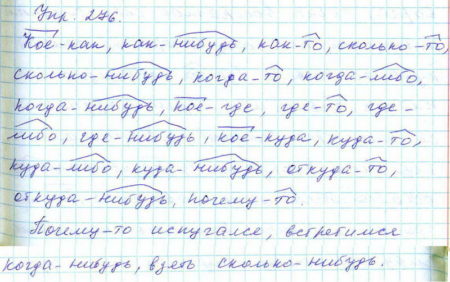 Упр. 276.
Кое-как, как-нибудь, как-то, сколько-то,
сколько-нибудь, когда-то, когда-либо,
когда-нибудь, кое-где, где-то, где-
либо, где-нибудь, кое-куда, куда-то,
куда-либо, куда-нибудь, откуда-то,
откуда-нибудь, почему-то.
Почему-то испугался, встретимся
когда-нибудь, взять сколько-нибудь.